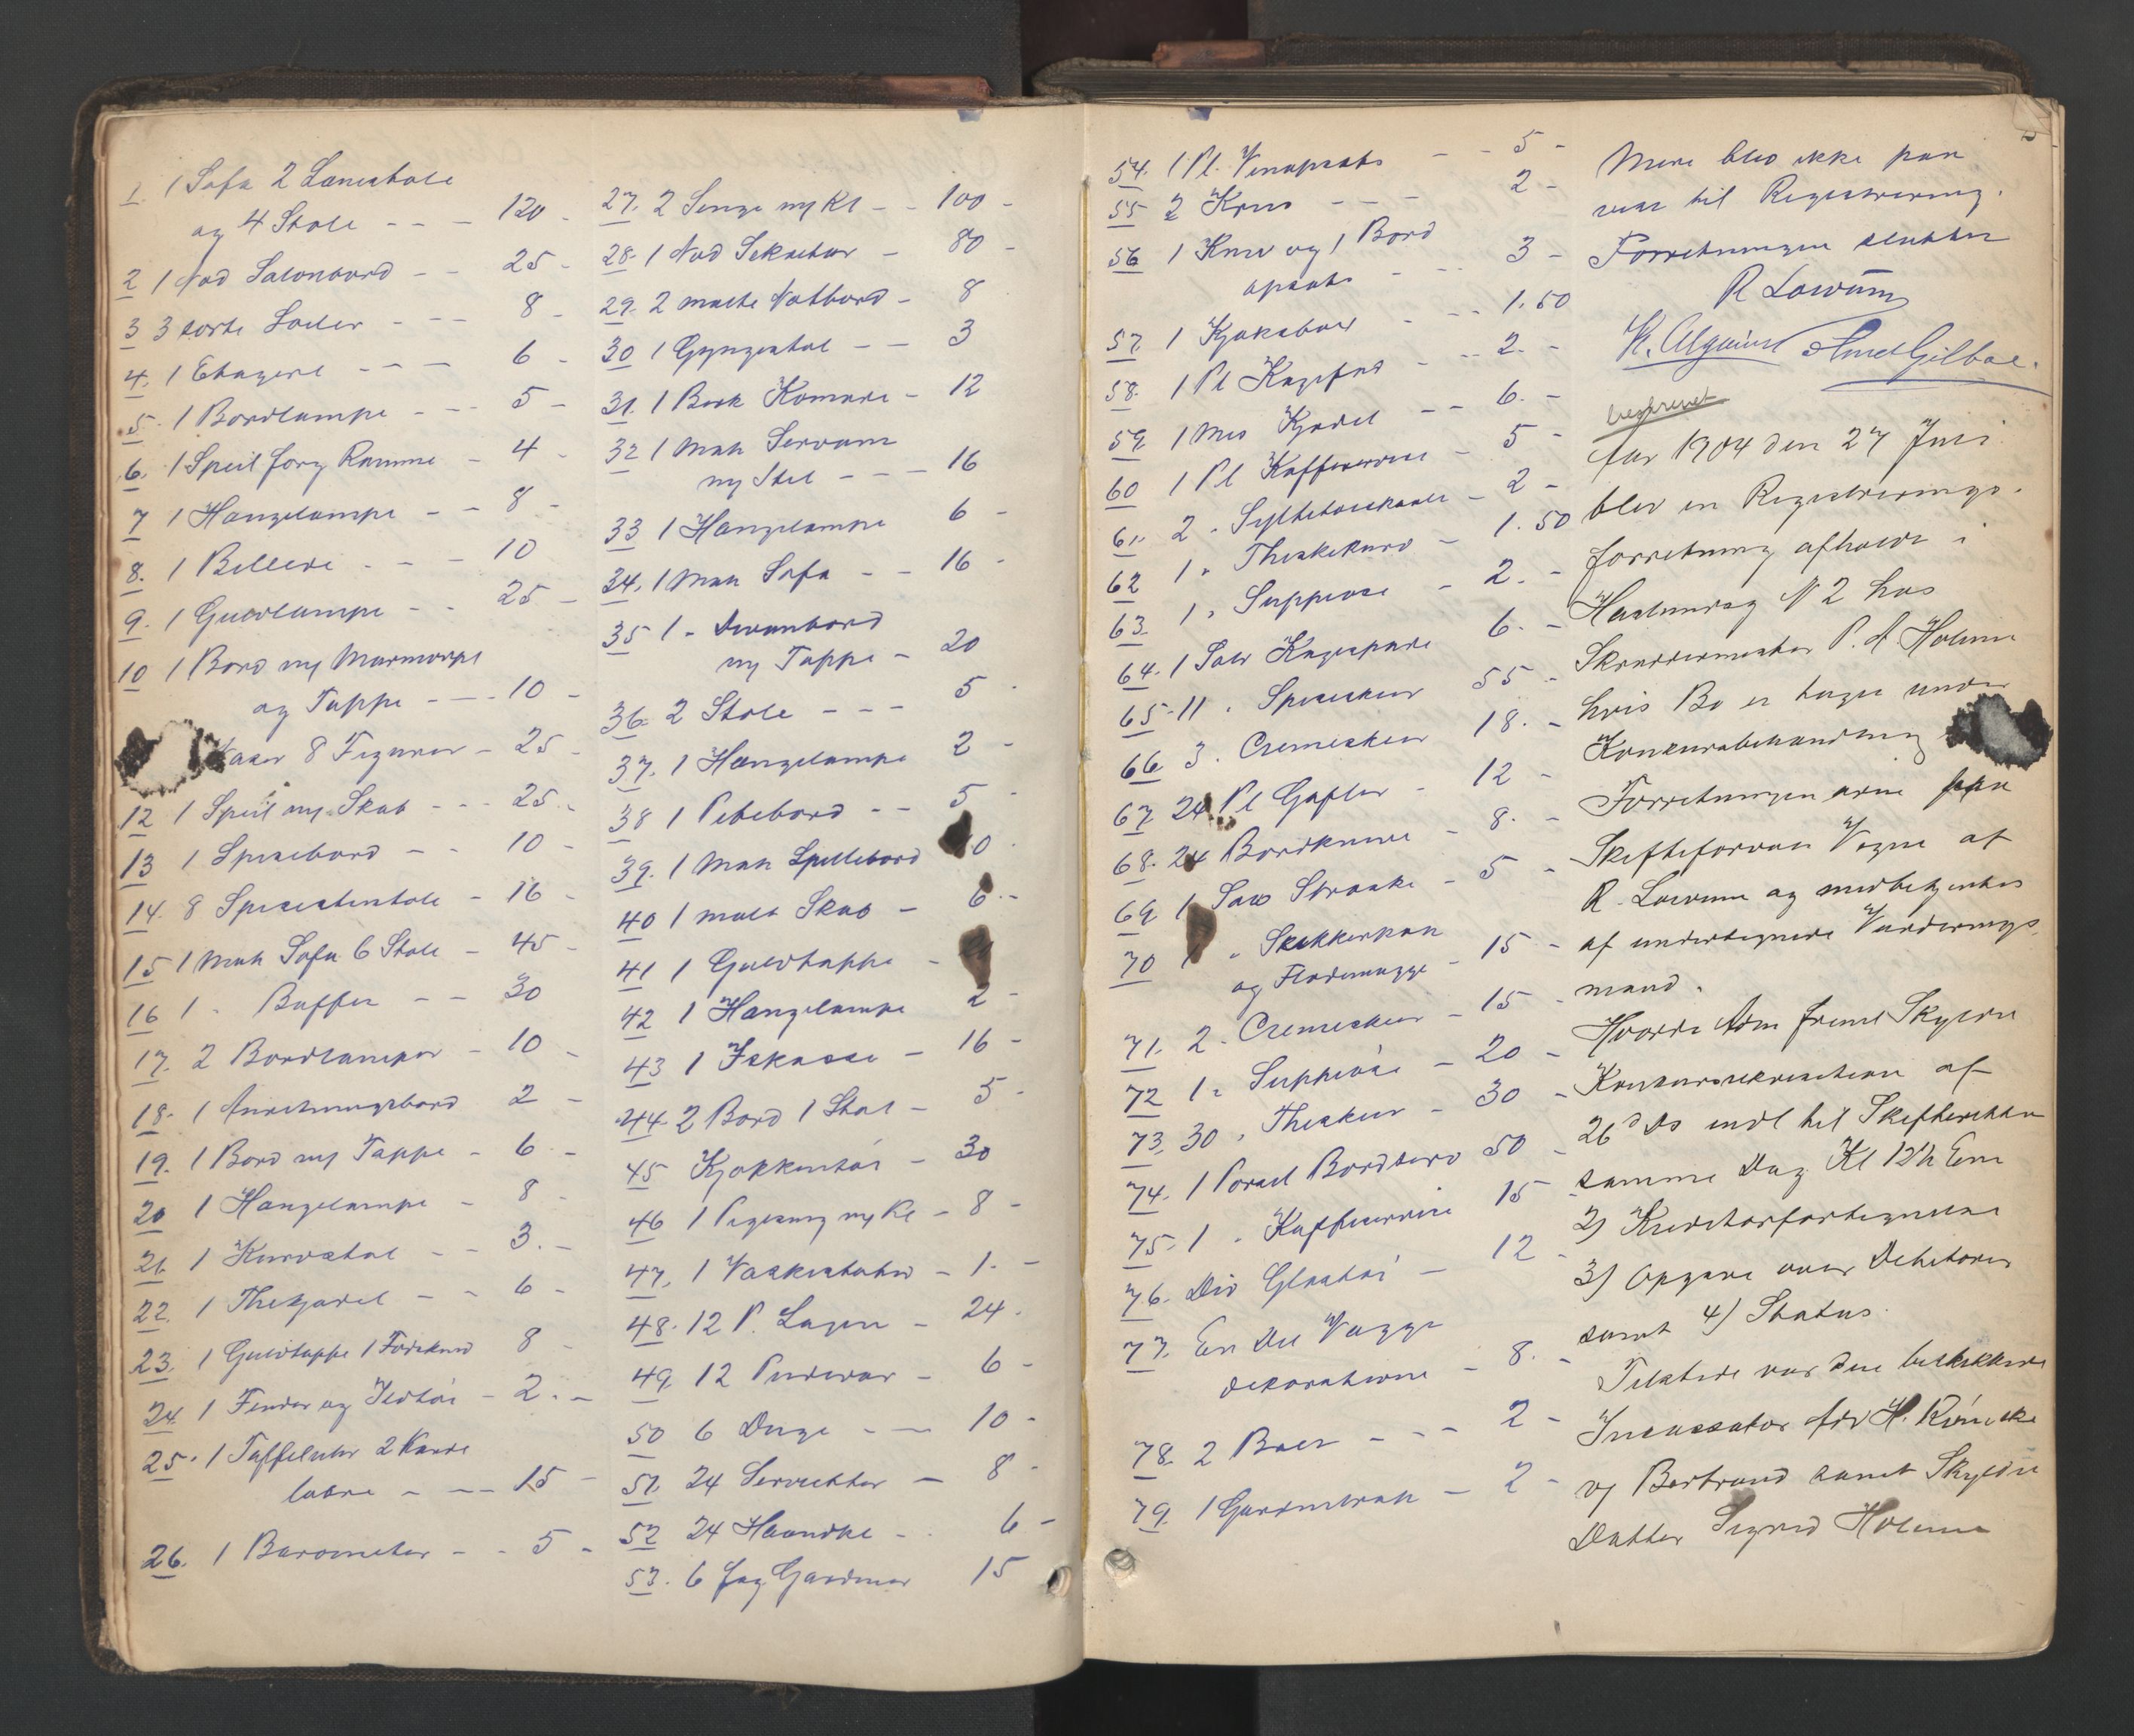 1. 1 Sofa 2 Lænestole
og 4 Stole - - - 120 -
2 1 Nød Salonbord - - 25 -
3 3 sorte Søiler - - - 8 -
4. 1 Etagere - - - 6 -
5. 1 Bordlampe - - - 5 -
6. 1 Speil forg Ramme - 4 -
7 1 Hængelampe - - 8 -
8. 1 Billede - - - 10
9. 1 Gulvlampe - - 25 -
10 1 Bord m/ Marmorpl
og Tæppe - - - 10 -
Vaser 8 Figurer - 25 -
12 1 Speil m/ Skab - - - 25 -
13 1 Spisebord - - 10 -
14. 8 Spisestustole - 16 -
15 1 Mah Sofa 6 Stole - 45 -
16 1 - Buffet - - 30
17. 2 Bordlamper - 10 -
18. 1 Anretningsbord 2 -
19. 1 Bord m/ Tæppe - 6 -
20 1 Hængelampe - 8 -
21. 1 Kurvstol - - 3. -
22. 1 Thekjedel - - 6 -
23. 1 Gulvtæppe 1 Fodskind 8 -
24. 1 Fender og Ildtøi - 2. -
25. 1 Taffeluhr 2 Kande
labre - - - 15 -
26. 1 Barometer - - 5 -
27. 2 Senge m/ Kl - - 100 -
28. 1 Nød Sekretær - 80 -
29. 2 malte Natbord - 8
30 1 Gyngestol - - 3
31. 1 Birk Komode - 12
32 1 Mah Servante
m/ Stel - - - 16
33 1 Hængelampe 6 -
34. 1 Mah Sofa - - 16 -
35 1 - Divanbord
m/ Tæppe - 20
36. 2 Stole - - - 5 -
37. 1 Hængelampe 2 -
38 1 Pibebord - - 5 -
39. 1 Mah Spillebord 0 -
40 1 malt Skab - 6 -
41 1 Gulvtæppe -
42 1 Hængelampe 2 -
43 1 Iskasse - 16 -
44. 2 Bord 1 Stol - 5 -
45 Kjøkkentøi - 30
46 1 Pigeseng m/ Kl - 8 -
47. 1 Vaskestativ - 1. -
48. 12 P. Lagen - 24 -
49. 12 Pudevar - 6 -
50 6 Duge - - 10 -
51. 24 Servietter - 8 -
52 24 Haandkl - - 6 -
53. 6 fag Gardiner 15
54. 1 Pl. Vinopsats - - 5 -
55 2 Krus - - - 2 -
56 1 Kniv og 1 Bord
opsats - - - 3 -
57. 1 - - - 1.50
58. 1 Pl Kagefad - - 2. -
59. 1 Mes Kjedel - - 6. -
60 1 Pl Kaffeservice - 5 -
61. 2 - Syltetøiskaale - 2 -
62 1 " Theskekurv - 1.50
63. 1 " Suppeøse - 2. -
64. 1 Sølv Kagespade 6. -
65. 11 " Spiseskeer 55 -
66 3 " Cremeskeer 18. -
67. 24 Pl Gafler - 12 -
68. 24 Bordknive - 8. -
69. 1 Sølv - 5 -
70 1 " Sukkerskaal
og Flødemugge - 15 -
71. 2 - Cremeskeer - 15 -
72 1 " Suppeøse - 20 -
73. 30 " Theskeer - 30 -
74. 1 Porcel Bordserv 50 -
75. 1 " Kaffeservice 15 -
76. Div Glastøi - 12 -
77. En Del Vægge
dekorationer - 8. -
78. 2 - - - 2 -
79. 1 - 2 -
Mere blev ikke paa
vist til Registrering.
Forretningen sluttet
R Lowum
beskrevet
Aar 1904 den 27 Juni
blev en Registrerings-
forretning afholdt i
N 2 hos
Skræddermester P. A Holum
hvis Bo er taget under
Konkursbehandling
Forretningen
Skifteforvalt Vegne af
R. Lowum og medbetjentes
af undertegnede Vurderings
mænd.
Hvorda Adm fremst Skyldn
Konkursrekvisition af
26 ds indl til Skifteretten
samme Dag Kl 12½ Em
2) Kreditorfortegnelse
3) Opgave over Debitorer
samt 4) Status.
Tilstede var den beskikkede
Incassator
v/ Bertrand samt Skyldn
Datter Sigrid Holum